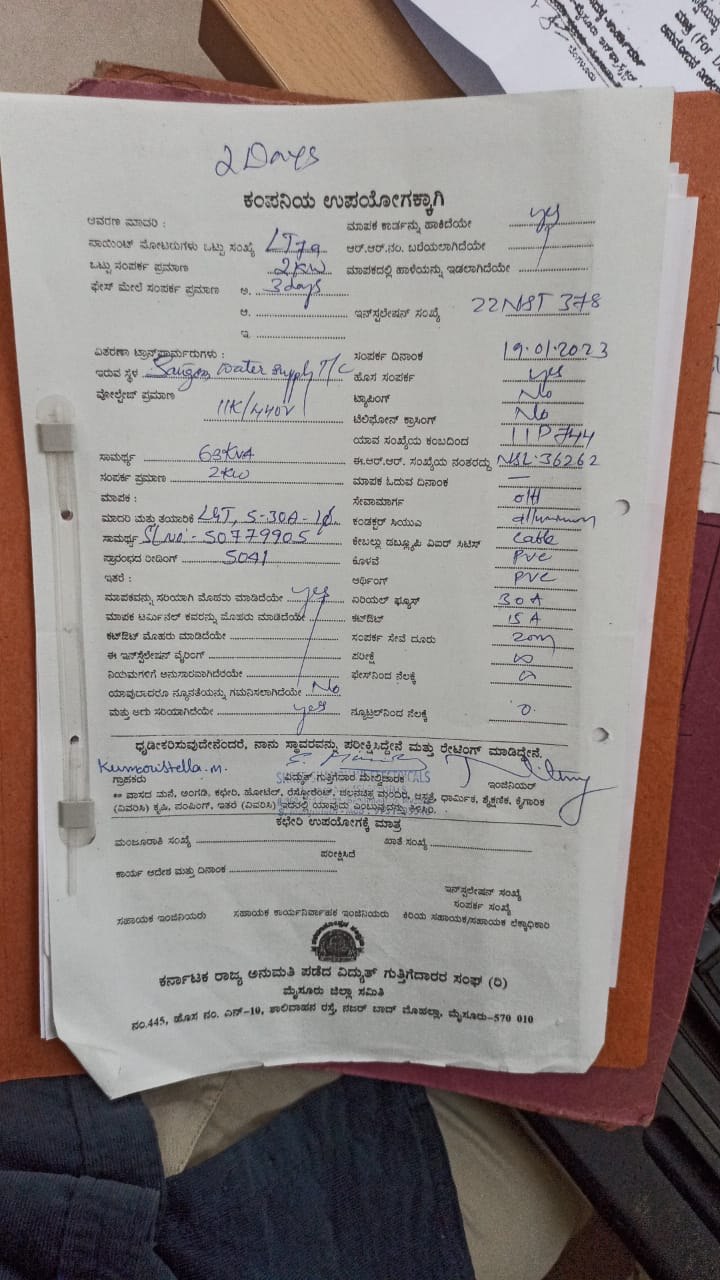 2 Days
ಕಂಪನಿಯ ಉಪಯೋಗಕ್ಕಾಗಿ
ಆವರಣ ಮಾದರಿ : ಮಾಪಕ ಕಾರ್ಡನ್ನು ಹಾಕಿದೆಯೇ yes
ಪಾಯಿಂಟ್ ಮೋಟರುಗಳು ಒಟ್ಟು ಸಂಖ್ಯೆ LT7a ಆರ್.ಆರ್.ನಂ. ಬರೆಯಲಾಗಿದೆಯೇ
ಒಟ್ಟು ಸಂಪರ್ಕ ಪ್ರಮಾಣ 2KW ಮಾಪಕದಲ್ಲಿ ಹಾಳೆಯನ್ನು ಇಡಲಾಗಿದೆಯೇ
ಫೇಸ್ ಮೇಲೆ ಸಂಪರ್ಕ ಪ್ರಮಾಣ ಅ. 3days
ಆ. ಇನ್‌ಸ್ಟಲೇಷನ್ ಸಂಖ್ಯೆ 22NST 378
ಇ.
ವಿತರಣಾ ಟ್ರಾನ್ಸ್‌ಫಾರ್ಮರುಗಳು : ಸಂಪರ್ಕ ದಿನಾಂಕ 19.01.2023
ಇರುವ ಸ್ಥಳ Water Supply T/C ಹೊಸ ಸಂಪರ್ಕ yes
ವೋಲ್ಟೇಜ್ ಪ್ರಮಾಣ ಟ್ಯಾಪಿಂಗ್ No
11K/440V ಟೆಲಿಫೋನ್ ಕ್ರಾಸಿಂಗ್ No
ಯಾವ ಸಂಖ್ಯೆಯ ಕಂಬದಿಂದ 11P744
ಸಾಮರ್ಥ್ಯ 63KVA ಈ.ಆರ್.ಆರ್. ಸಂಖ್ಯೆಯ ನಂತರದ್ದು NSL:36262
ಸಂಪರ್ಕ ಪ್ರಮಾಣ 2KW ಮಾಪಕ ಓದುವ ದಿನಾಂಕ —
ಮಾಪಕ : ಸೇವಾಮಾರ್ಗ o/H
ಮಾದರಿ ಮತ್ತು ತಯಾರಿಕೆ L&T, 5-30A-1ϕ ಕಂಡಕ್ಟರ್ ಸಿಯುಎ
ಸಾಮರ್ಥ್ಯ Sl.No:- 50779905 ಕೇಬಲ್ಲು ಡಬ್ಲ್ಯೂಪಿ ವಿಐರ್ ಸಿಟಿಸ್ Cable
ಪ್ರಾರಂಭದ ರೀಡಿಂಗ್ 5041 ಕೊಳವೆ PVC
ಇತರೆ : ಆರ್ಥಿಂಗ್ PVC
ಮಾಪಕವನ್ನು ಸರಿಯಾಗಿ ಮೊಹರು ಮಾಡಿದೆಯೇ yes ಏರಿಯಲ್ ಫ್ಯೂಸ್ 30A
ಮಾಪಕ ಟರ್ಮಿನಲ್ ಕವರನ್ನು ಮೊಹರು ಮಾಡಿದೆಯೇ ಕಟ್‌ಔಟ್ 15A
ಕಟ್‌ಔಟ್ ಮೊಹರು ಮಾಡಿದೆಯೇ ಸಂಪರ್ಕ ಸೇವೆ ದೂರು 20m
ಈ ಇನ್‌ಸ್ಟಲೇಷನ್ ವೈರಿಂಗ್ ಪರೀಕ್ಷೆ ∞
ನಿಯಮಗಳಿಗೆ ಅನುಸಾರವಾಗಿದೆಯೇ ಫೇಸ್‌ನಿಂದ ನೆಲಕ್ಕೆ
ಯಾವುದಾದರೂ ನ್ಯೂನತೆಯನ್ನು ಗಮನಿಸಲಾಗಿದೆಯೇ No
ಮತ್ತು ಅದು ಸರಿಯಾಗಿದೆಯೇ yes ನ್ಯೂಟ್ರಲ್‌ನಿಂದ ನೆಲಕ್ಕೆ 0
ಧೃಡೀಕರಿಸುವುದೇನೆಂದರೆ, ನಾನು ಸ್ಥಾವರವನ್ನು ಪರೀಕ್ಷಿಸಿದ್ದೇನೆ ಮತ್ತು ರೇಟಿಂಗ್ ಮಾಡಿದ್ದೇನೆ.
Kumari Stella.m.
ಗ್ರಾಹಕರು ವಿದ್ಯುತ್ ಗುತ್ತಿಗೆದಾರ ಮೇಲ್ವಿಚಾರಕ ಇಂಜಿನಿಯರ್
** ವಾಸದ ಮನೆ, ಅಂಗಡಿ, ಕಛೇರಿ, ಹೋಟೆಲ್, ರೆಸ್ಟೋರೆಂಟ್, ಚಲನಚಿತ್ರ ಮಂದಿರ, ಆಸ್ಪತ್ರೆ, ಧಾರ್ಮಿಕ, ಶೈಕ್ಷಣಿಕ, ಕೈಗಾರಿಕ
(ವಿವರಿಸಿ) ಕೃಷಿ, ಪಂಪಿಂಗ್, ಇತರೆ (ವಿವರಿಸಿ) ಇವರಲ್ಲಿ ಯಾವುದು ಎಂಬುವುದನ್ನು ತಿಳಿಸಿರಿ.
ಕಛೇರಿ ಉಪಯೋಗಕ್ಕೆ ಮಾತ್ರ
ಮಂಜೂರಾತಿ ಸಂಖ್ಯೆ ಖಾತೆ ಸಂಖ್ಯೆ
ಪರೀಕ್ಷಿಸಿದೆ
ಕಾರ್ಯ ಆದೇಶ ಮತ್ತು ದಿನಾಂಕ
ಇನ್‌ಸ್ಟಲೇಷನ್ ಸಂಖ್ಯೆ
ಸಂಪರ್ಕ ಸಂಖ್ಯೆ
ಸಹಾಯಕ ಇಂಜಿನಿಯರು ಸಹಾಯಕ ಕಾರ್ಯನಿರ್ವಾಹಕ ಇಂಜಿನಿಯರು ಕಿರಿಯ ಸಹಾಯಕ/ಸಹಾಯಕ ಲೆಕ್ಕಾಧಿಕಾರಿ
ಕರ್ನಾಟಕ ರಾಜ್ಯ ಅನುಮತಿ ಪಡೆದ ವಿದ್ಯುತ್ ಗುತ್ತಿಗೆದಾರರ ಸಂಘ (ರಿ)
ಮೈಸೂರು ಜಿಲ್ಲಾ ಸಮಿತಿ
ನಂ.445, ಹೊಸ ನಂ. ಎನ್-10, ಶಾಲಿವಾಹನ ರಸ್ತೆ, ನಜರ್ ಬಾದ್ ಮೊಹಲ್ಲಾ, ಮೈಸೂರು-570 010